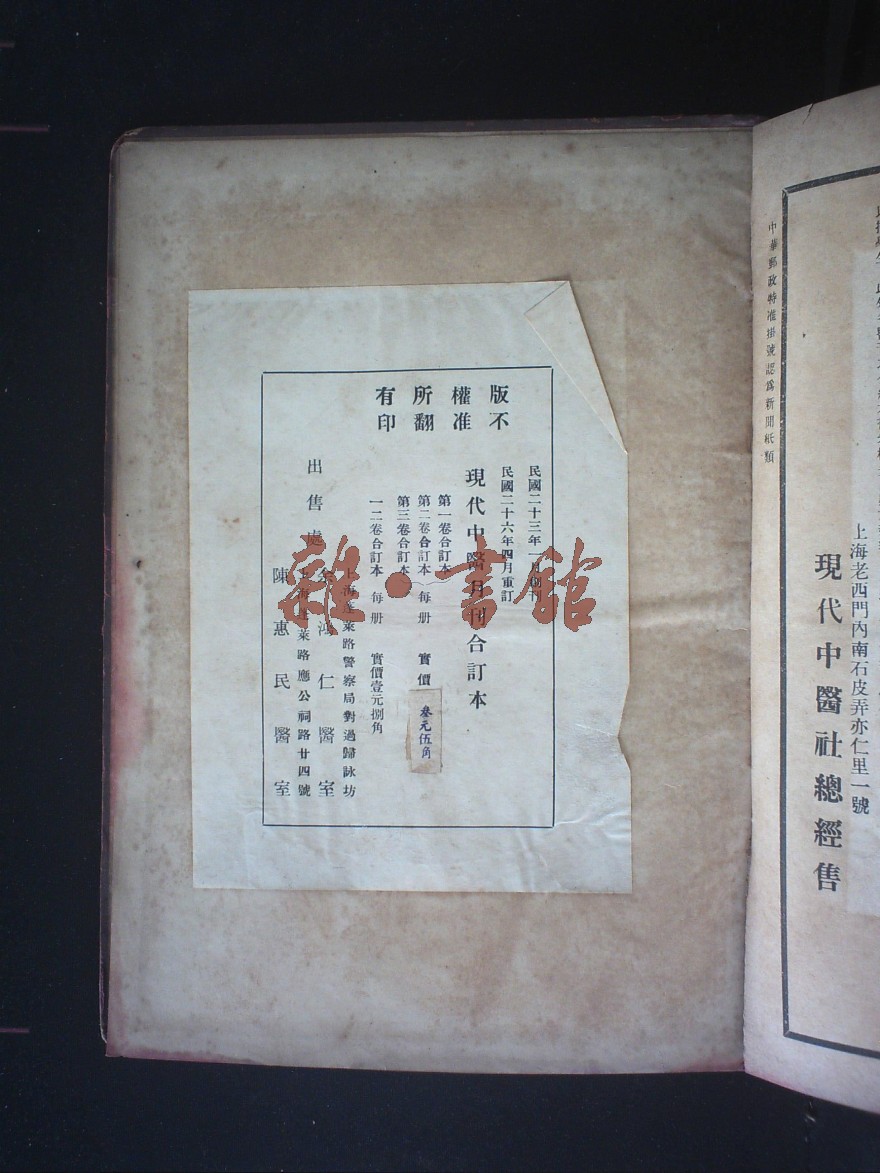 中華郵政特准掛號認爲新聞紙類
上海老西門內南石皮弄亦仁里一號
現代中醫社總經售
版權所有
不准翻印
民國二十三年一月創刊
民國二十六年四月重訂
現代中醫月刊合訂本
第一卷合訂本
第二卷合訂本 每册 實價 叁元伍角
第三卷合訂本
一二卷合訂本 每册 實價壹元捌角
出售處
上海蓬萊路警察局對過歸詠坊
鴻仁醫室
上海蓬萊路應公祠路廿四號
陳惠民醫室
雜·書館